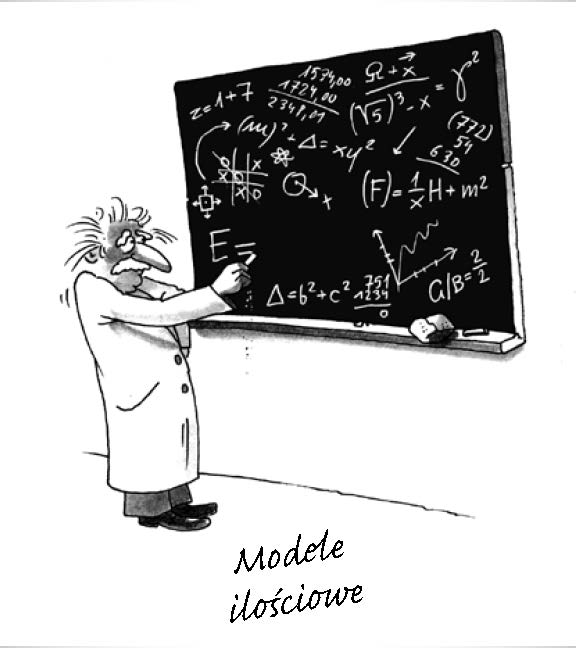 z=1+7
1574,00
1724,00
2348,01
Ω+x⃗
(√5)³-x
=γ²
(m)²+Δ=xy²
(772)
54
630
x
(F)=1/x H+m²
E=
Δ=b²+c²
751
1234
0
G/B=2/2
Modele
ilościowe